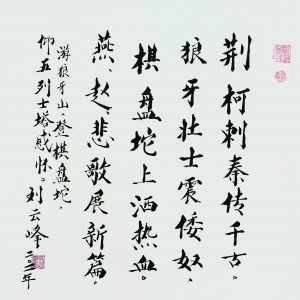 荆柯刺秦传千古。
狼牙壮士震倭奴、
棋盘坨上洒热血。
燕、赵、悲歌展新篇。
游狼牙山、登棋盘坨、
仰五列士塔感怀。刘云峰
二〇二一年